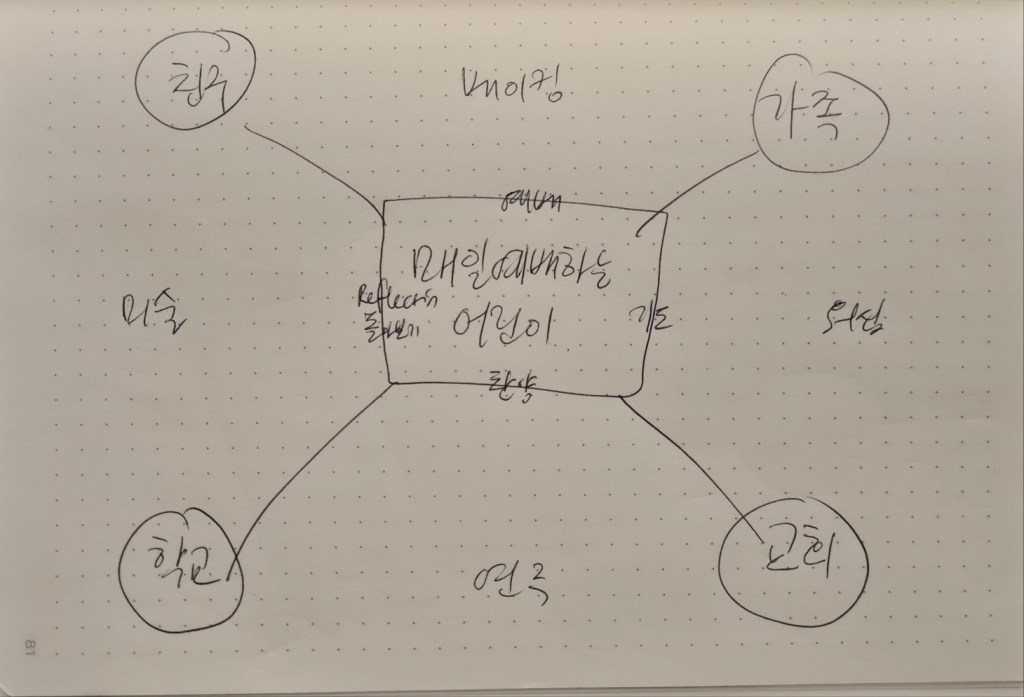 친구
베이킹
가족
예배
매일예배하는
어린이
Reflection
돌아보기
기도
미술
찬양
학교
연극
교회
81